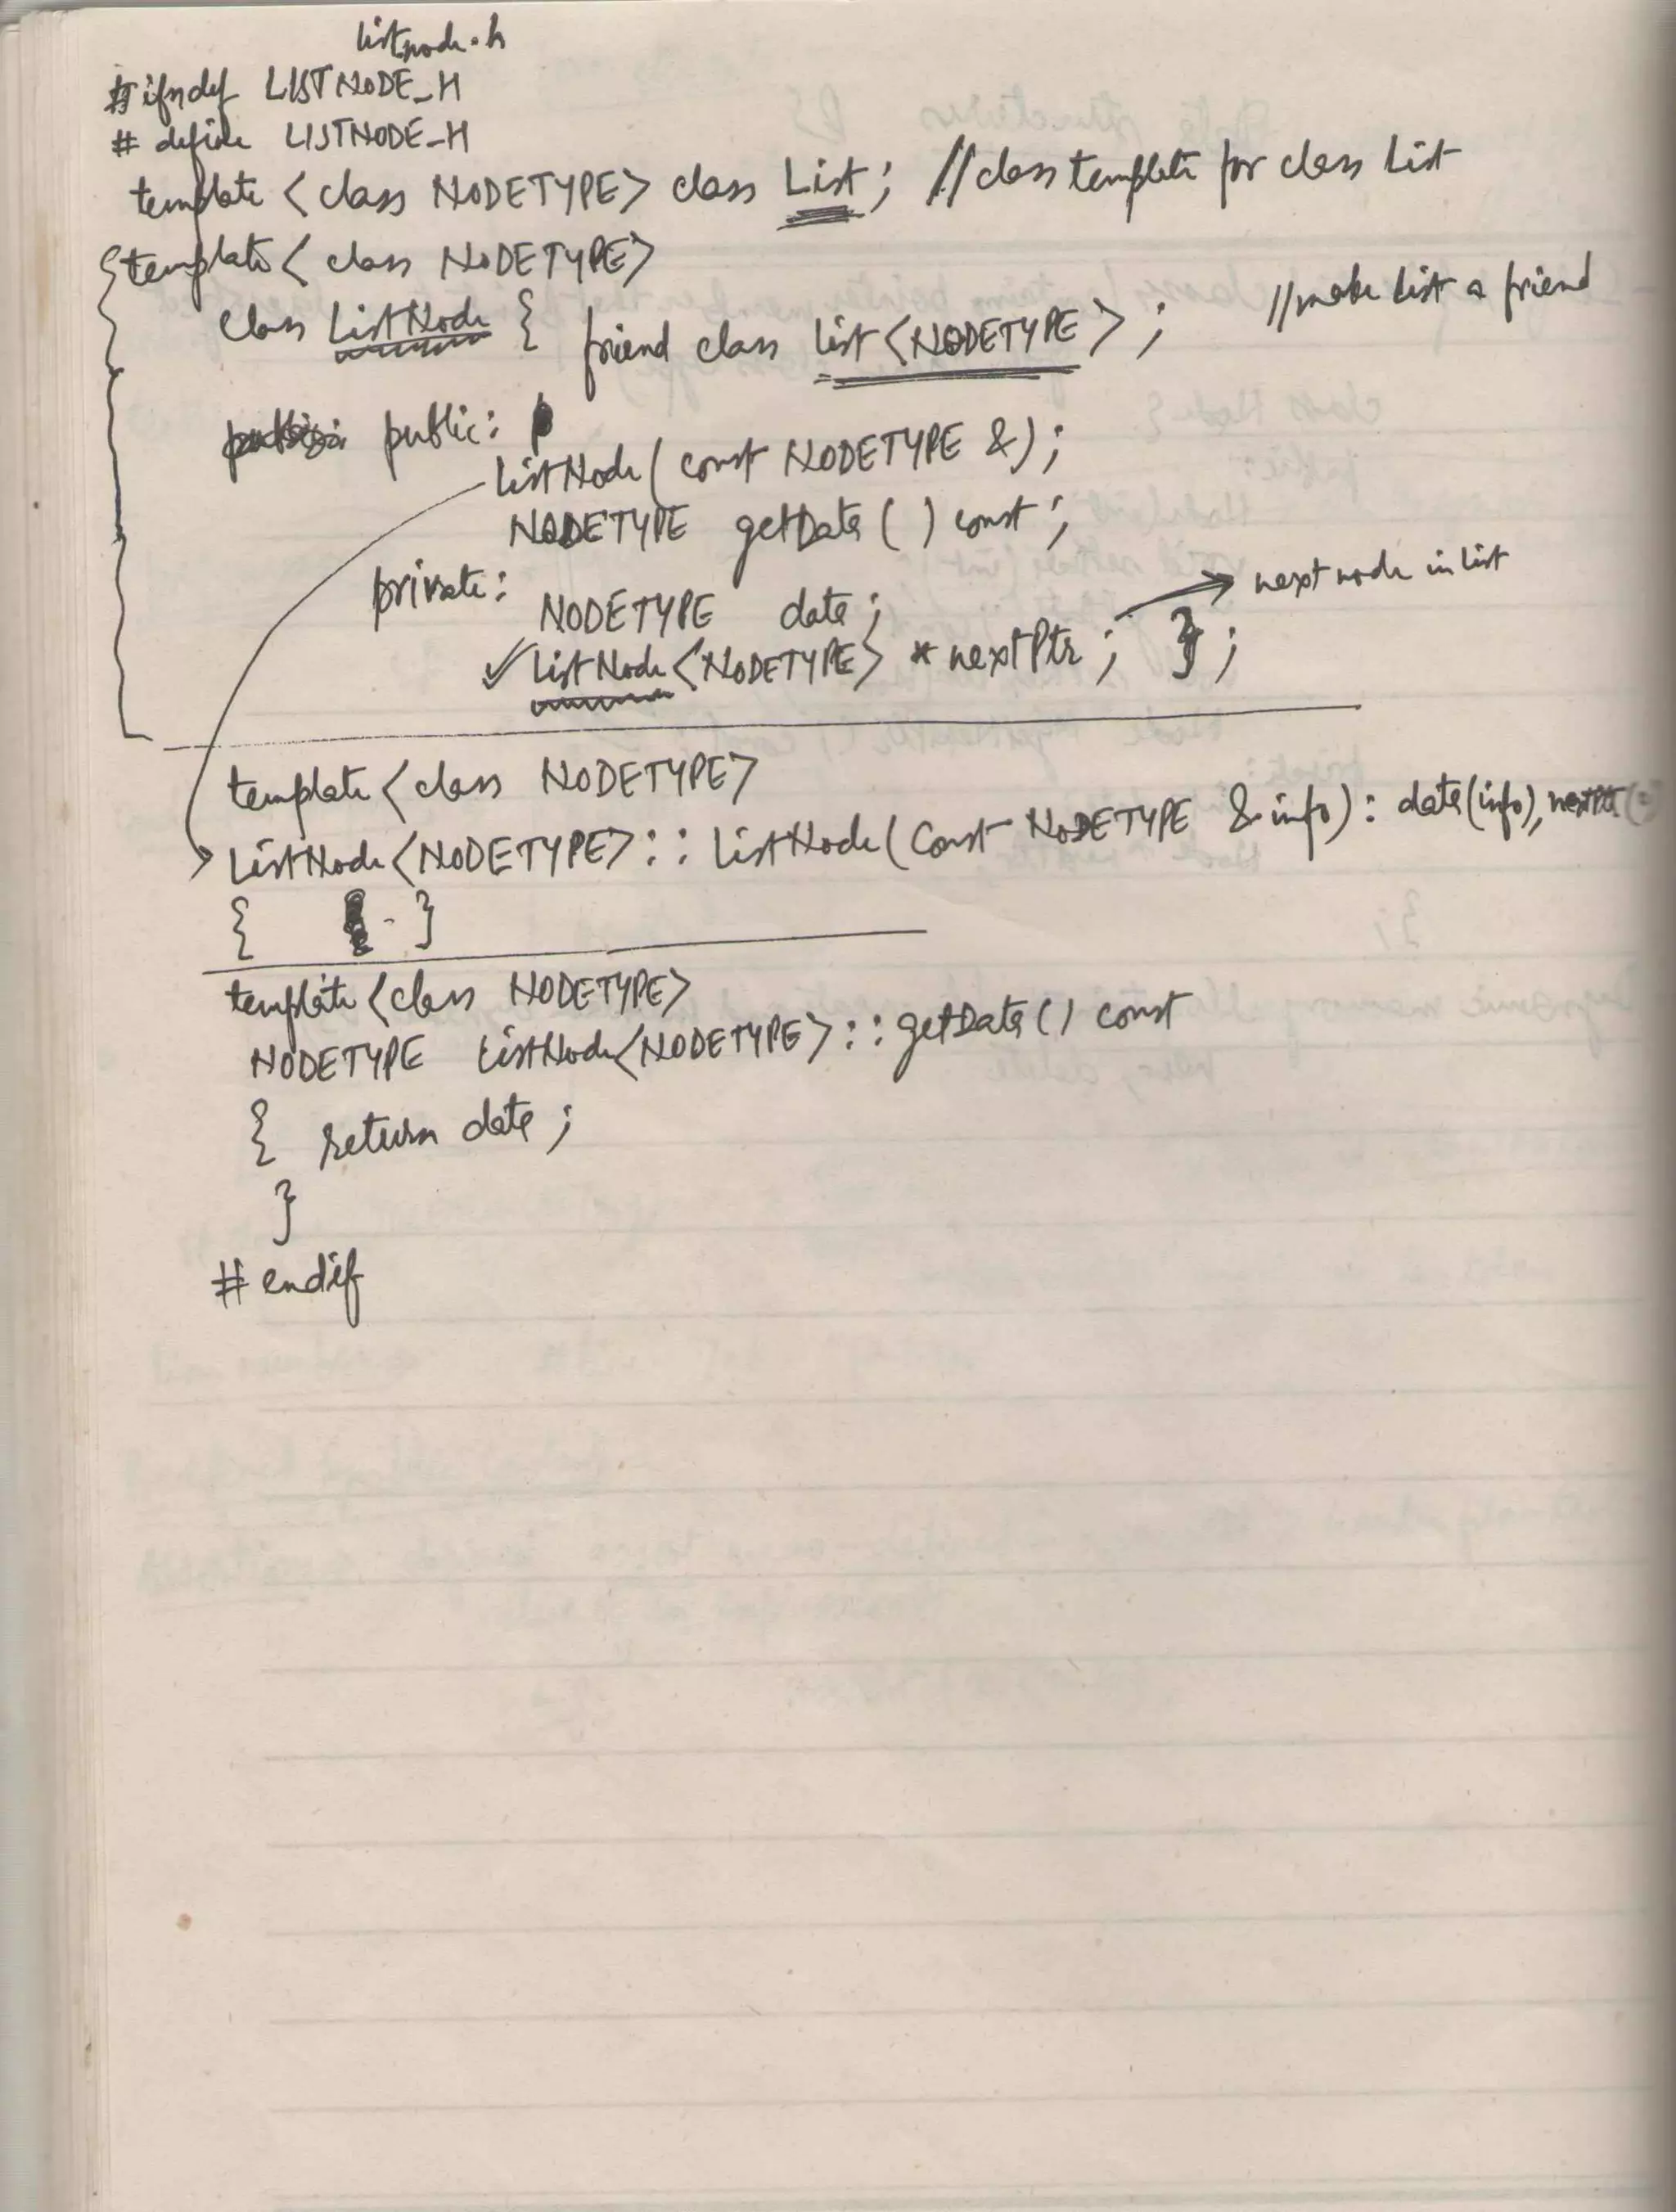 listnode.h
#ifndef LISTNODE_H
# define LISTNODE_H
template <class NODETYPE> class List; //class template for class List
template < class NODETYPE>
class ListNode { friend class List<NODETYPE> ; //make List a friend
public:
ListNode( const NODETYPE &);
NODETYPE getData ( ) const ;
private:
NODETYPE data ;
ListNode <NODETYPE> * nextPtr ; } ; → next node in list
template < class NODETYPE>
ListNode <NODETYPE> : : ListNode( Const NODETYPE & info) : data(info), nextPtr (
{ }
template <class NODETYPE>
NODETYPE ListNode<NODETYPE> : : getData () const
{ return data ;
}
# endif